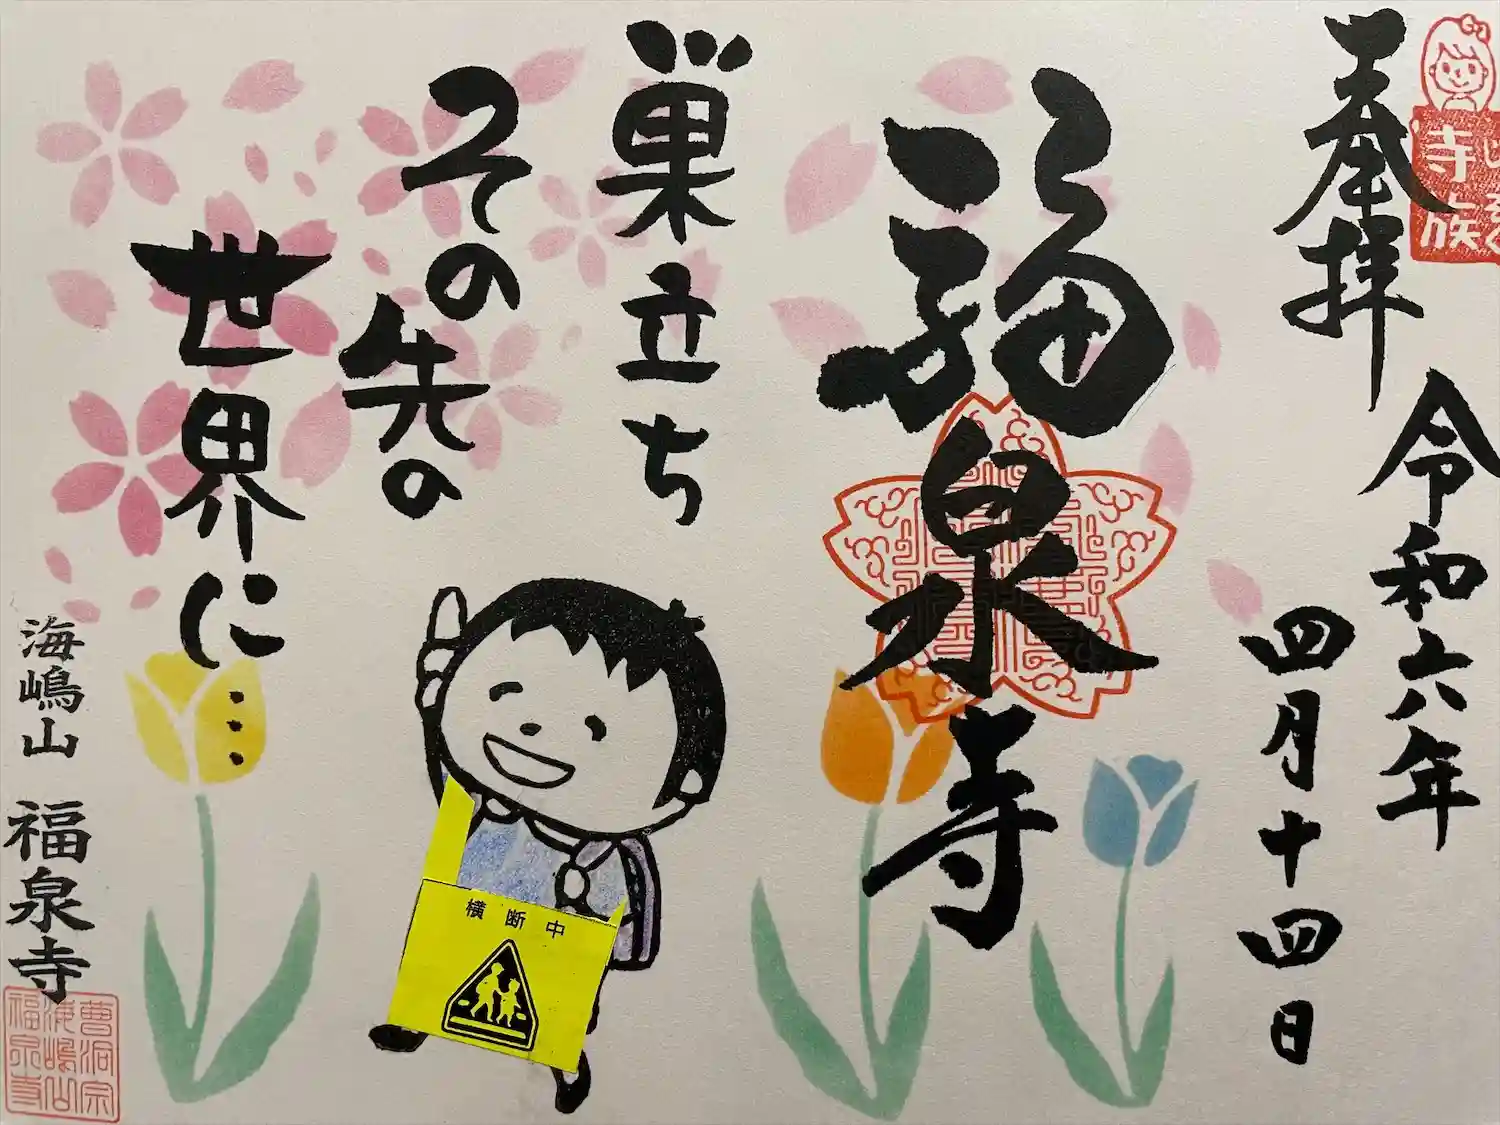 奉拝
令和六年
四月十四日
福泉寺
巣立ち
その先の
世界に…
海嶋山 福泉寺
横断中
寺族
曹洞宗
海嶋山
福泉寺